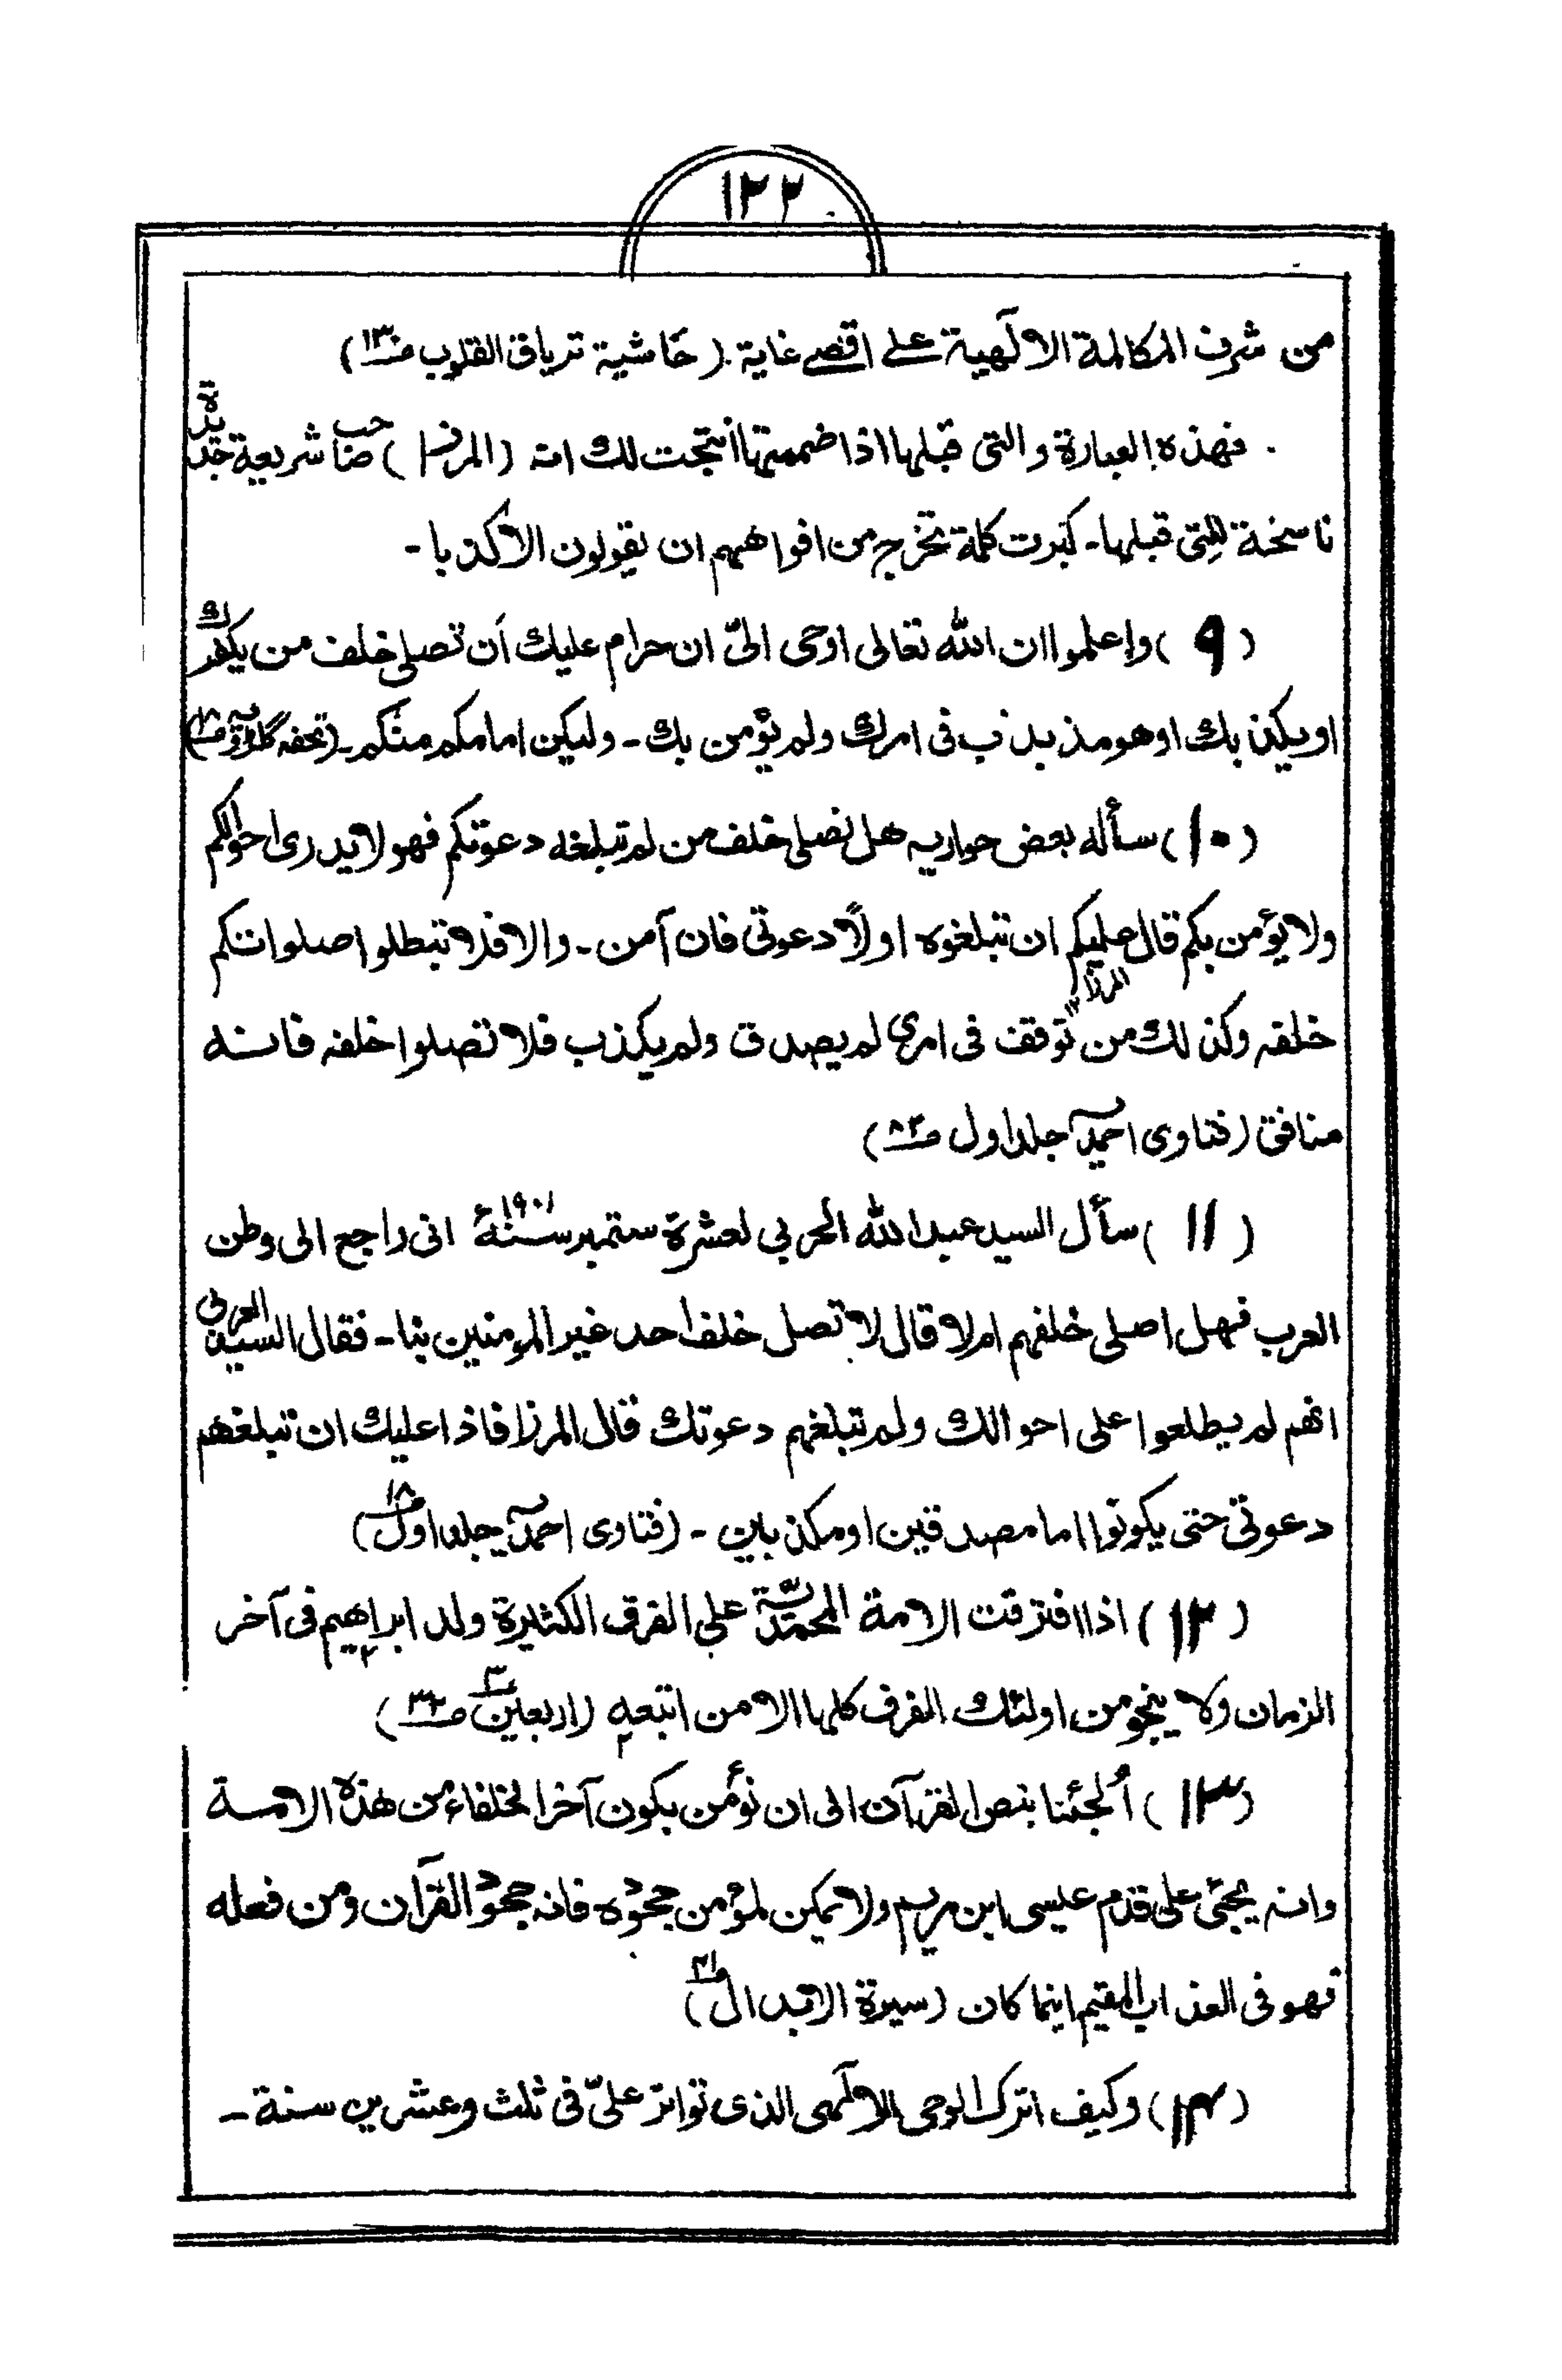 ١٢٢
من شرف المكالمة الالٓهية على اقصى غاية. (حاشية ترياق القلوب صـ١٣٠)
فهذه العبارة والتى قبلها اذا ضممتها انتجت لك انه (المرزا) صاحب شريعة جديدة
ناسخة للتى قبلها۔ كبرت كلمة تخرج من افواههم ان يقولون الا كذبا۔
(٩) واعلموا ان الله تعالى اوحى الىّ ان حرام عليك أن تصلى خلف من يكفرك
او يكذبك او هو مذبذب فى امرك ولم يؤمن بك۔ وليكن امامكم منكم۔ (تحفه گولڑویہ صـ١٨)
(١٠) سأله بعض حواريه هل نصلى خلف من لم تبلغه دعوتكم فهو لا يدرى احوالكم
ولا يؤمن بكم قال عليكم ان تبلغوه اولًا دعوتى فان آمن۔ والا فلا تبطلوا صلواتكم
خلفه وكذلك من توقف فى امرى لم يصدق ولم يكذب فلا تصلوا خلفه فانه
منافق (فتاوى احمديه جلد اول صـ٨٢)
(١١) سأل السيد عبد الله العربي لعشرة ستمبر سنة ١٩٠١ء انى راجع الى وطن
العرب فهل اصلى خلفهم ام لا قال لا تصل خلف احد غير المومنين بنا۔ فقال السيد العربى
انهم لم يطلعوا على احوالك ولم تبلغهم دعوتك قال المرزا فاذا عليك ان تبلغهم
دعوتى حتى يكونوا اما مصدقين او مكذبين۔ (فتاوى احمديه جلد اول صـ١٨)
(١٢) اذا افترقت الامة المحمديّة على الفرق الكثيرة ولد ابراهيم فى آخر
الزمان ولا ينجو من اولئك الفرق كلها الا من اتبعه (اربعين ٣ صـ٣٢)
(١٣) أُلجئنا بنص القرآن الى ان نؤمن بكون آخر الخلفاء من هذه الامة
وانه يجئ على قدم عيسى ابن مريم ولا يمكن لمؤمن جحوده فانه جحود القرآن ومن فعله
فهو فى العذاب المقيم اينما كان (سيرة الابدال صـ٢١)
(١٤) وكيف اترك الوحى الالٓهى الذى تواتر علىّ فى ثلث وعشرين سنة۔